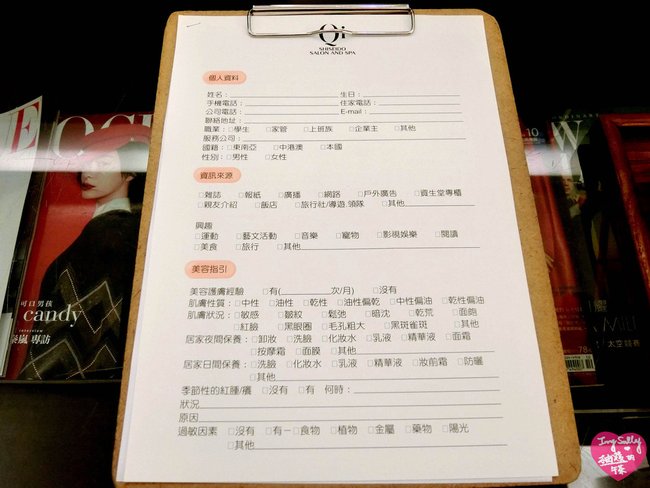 Qi
SHISEIDO
SALON AND SPA
個人資料
姓名：____ 生日：____
手機電話：____ 住家電話：____
公司電話：____ E-mail：____
聯絡地址：____
職業：□學生 □家管 □上班族 □企業主 □其他
服務公司：____
國籍：□東南亞 □中港澳 □本國
性別：□男性 □女性
資訊來源
□雜誌 □報紙 □廣播 □網路 □戶外廣告 □資生堂專櫃
□親友介紹 □飯店 □旅行社/導遊.領隊 □其他____
興趣
□運動 □藝文活動 □音樂 □寵物 □影視娛樂 □閱讀
□美食 □旅行 □其他____
美容指引
美容護膚經驗 □有(____次/月) □沒有
肌膚性質：□中性 □油性 □乾性 □油性偏乾 □中性偏油 □乾性偏油
肌膚狀況：□敏感 □皺紋 □鬆弛 □暗沈 □乾荒 □面皰
□紅臉 □黑眼圈 □毛孔粗大 □黑斑雀斑 □其他
居家夜間保養：□卸妝 □洗臉 □化妝水 □乳液 □精華液 □面霜
□按摩霜 □面膜 □其他____
居家日間保養：□洗臉 □化妝水 □乳液 □精華液 □妝前霜 □防曬
□其他____
季節性的紅腫/癢 □沒有 □有 何時：____
狀況____
原因____
過敏因素 □沒有 □有－□食物 □植物 □金屬 □藥物 □陽光
□其他____
可口男孩
candy
interview
泰嵐 專訪
10
W
太空競賽
Ivy Sally